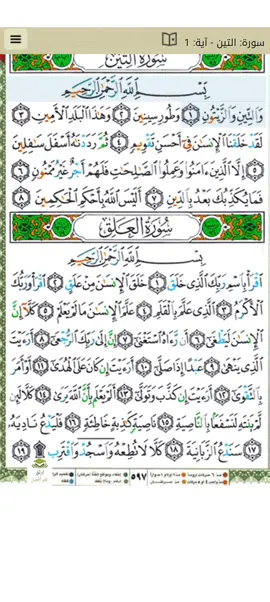 سورة: التين - آية: 1
سُورَةُ التِّينِ
بِسْمِ اللَّهِ الرَّحْمَٰنِ الرَّحِيمِ
وَالتِّينِ وَالزَّيْتُونِ ١ وَطُورِ سِينِينَ ٢ وَهَٰذَا الْبَلَدِ الْأَمِينِ ٣
لَقَدْ خَلَقْنَا الْإِنسَٰنَ فِي أَحْسَنِ تَقْوِيمٍ ٤ ثُمَّ رَدَدْنَٰهُ أَسْفَلَ سَٰفِلِينَ
٥ إِلَّا الَّذِينَ ءَامَنُوا وَعَمِلُوا الصَّٰلِحَٰتِ فَلَهُمْ أَجْرٌ غَيْرُ مَمْنُونٍ ٦
فَمَا يُكَذِّبُكَ بَعْدُ بِالدِّينِ ٧ أَلَيْسَ اللَّهُ بِأَحْكَمِ الْحَٰكِمِينَ ٨
سُورَةُ الْعَلَقِ
بِسْمِ اللَّهِ الرَّحْمَٰنِ الرَّحِيمِ
اقْرَأْ بِاسْمِ رَبِّكَ الَّذِي خَلَقَ ١ خَلَقَ الْإِنسَٰنَ مِنْ عَلَقٍ ٢ اقْرَأْ وَرَبُّكَ
الْأَكْرَمُ ٣ الَّذِي عَلَّمَ بِالْقَلَمِ ٤ عَلَّمَ الْإِنسَٰنَ مَا لَمْ يَعْلَمْ ٥ كَلَّا إِنَّ
الْإِنسَٰنَ لَيَطْغَىٰ ٦ أَن رَّءَاهُ اسْتَغْنَىٰ ٧ إِنَّ إِلَىٰ رَبِّكَ الرُّجْعَىٰ ٨ أَرَءَيْتَ
الَّذِي يَنْهَىٰ ٩ عَبْدًا إِذَا صَلَّىٰ ١٠ أَرَءَيْتَ إِن كَانَ عَلَى الْهُدَىٰ ١١ أَوْ أَمَرَ
بِالتَّقْوَىٰ ١٢ أَرَءَيْتَ إِن كَذَّبَ وَتَوَلَّىٰ ١٣ أَلَمْ يَعْلَم بِأَنَّ اللَّهَ يَرَىٰ ١٤ كَلَّا لَئِن
لَّمْ يَنتَهِ لَنَسْفَعًا بِالنَّاصِيَةِ ١٥ نَاصِيَةٍ كَٰذِبَةٍ خَاطِئَةٍ ١٦ فَلْيَدْعُ نَادِيَهُ
١٧ سَنَدْعُ الزَّبَانِيَةَ ١٨ كَلَّا لَا تُطِعْهُ وَاسْجُدْ وَاقْتَرِب ١٩
٥٩٧